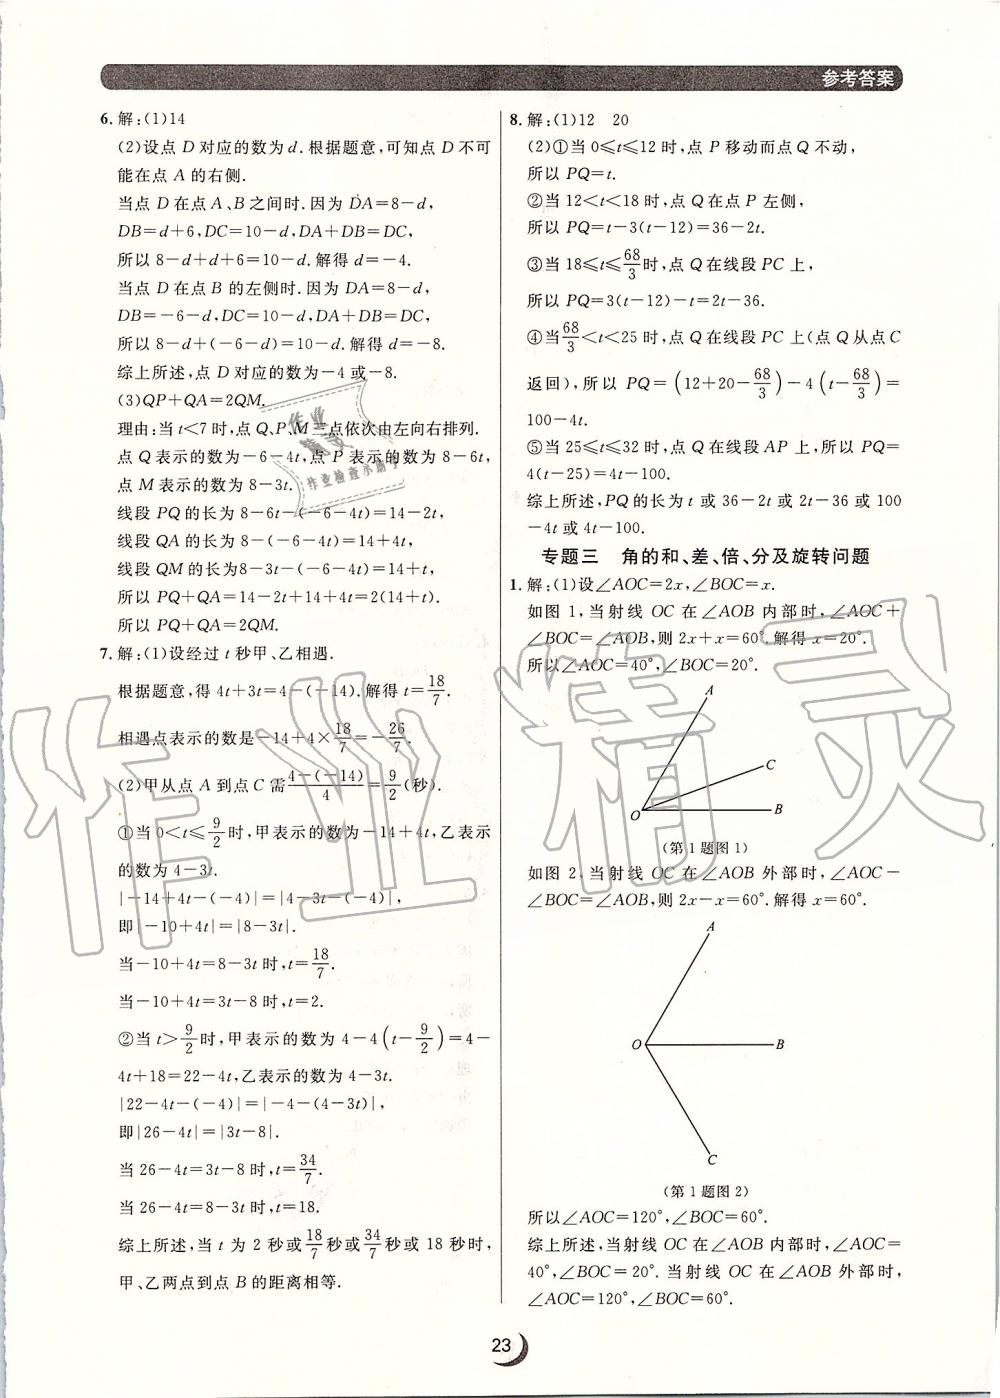 参考答案
6. 解:(1)14
(2)设点 D 对应的数为 d. 根据题意,可知点 D 不可
能在点 A 的右侧.
当点 D 在点 A、B 之间时. 因为 DA=8-d,
DB=d+6,DC=10-d,DA+DB=DC,
所以 8-d+d+6=10-d. 解得 d=-4.
当点 D 在点 B 的左侧时. 因为 DA=8-d,
DB=-6-d,DC=10-d,DA+DB=DC,
所以 8-d+(-6-d)=10-d. 解得 d=-8.
综上所述,点 D 对应的数为-4 或-8.
(3)QP+QA=2QM.
理由:当 t<7 时,点 Q、P、M 三点依次由左向右排列.
点 Q 表示的数为-6-4t,点 P 表示的数为 8-6t,
点 M 表示的数为 8-3t.
线段 PQ 的长为 8-6t-(-6-4t)=14-2t,
线段 QA 的长为 8-(-6-4t)=14+4t,
线段 QM 的长为 8-3t-(-6-4t)=14+t,
所以 PQ+QA=14-2t+14+4t=2(14+t).
所以 PQ+QA=2QM.
7. 解:(1)设经过 t 秒甲、乙相遇.
根据题意,得 4t+3t=4-(-14). 解得 t=18/7.
相遇点表示的数是-14+4×18/7=-26/7.
(2)甲从点 A 到点 C 需 4-(-14)/4=9/2(秒).
①当 0<t≤9/2时,甲表示的数为-14+4t,乙表示
的数为 4-3t.
|-14+4t-(-4)|=|4-3t-(-4)|,
即|-10+4t|=|8-3t|.
当-10+4t=8-3t 时,t=18/7.
当-10+4t=-8+3t 时,t=2.
②当 t>9/2时,甲表示的数为 4-4(t-9/2)=4-
4t+18=22-4t,乙表示的数为 4-3t.
|22-4t-(-4)|=|-4-(4-3t)|,
即|26-4t|=|3t-8|.
当 26-4t=3t-8 时,t=34/7.
当 26-4t=8-3t 时,t=18.
综上所述,当 t 为 2 秒或18/7秒或34/7秒或 18 秒时,
甲、乙两点到点 B 的距离相等.
8. 解:(1)12 20
(2)①当 0≤t≤12 时,点 P 移动而点 Q 不动,
所以 PQ=t.
②当 12<t<18 时,点 Q 在点 P 左侧,
所以 PQ=t-3(t-12)=36-2t.
③当 18≤t≤68/3时,点 Q 在线段 PC 上,
所以 PQ=3(t-12)-t=2t-36.
④当68/3<t<25 时,点 Q 在线段 PC 上(点 Q 从点 C
返回),所以 PQ=(12+20-68/3)-4(t-68/3)=
100-4t.
⑤当 25≤t≤32 时,点 Q 在线段 AP 上,所以 PQ=
4(t-25)=4t-100.
综上所述,PQ 的长为 t 或 36-2t 或 2t-36 或 100
-4t 或 4t-100.
专题三 角的和、差、倍、分及旋转问题
1. 解:(1)设∠AOC=2x,∠BOC=x.
如图 1,当射线 OC 在∠AOB 内部时,∠AOC+
∠BOC=∠AOB,则 2x+x=60°. 解得 x=20°.
所以∠AOC=40°,∠BOC=20°.
A
C
O
B
(第 1 题图 1)
如图 2,当射线 OC 在∠AOB 外部时,∠AOC-
∠BOC=∠AOB,则 2x-x=60°. 解得 x=60°.
A
O
B
C
(第 1 题图 2)
所以∠AOC=120°,∠BOC=60°.
综上所述,当射线 OC 在∠AOB 内部时,∠AOC=
40°,∠BOC=20°. 当射线 OC 在∠AOB 外部时,
∠AOC=120°,∠BOC=60°.
23
作业精灵
作业
精灵
作业检查小助手